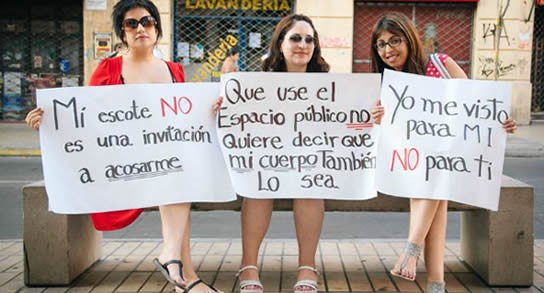 LAVANDERIA
Mi escote NO
es una invitación
a acosarme
Que use el
Espacio público no
Quiere decir que
mi cuerpo También
Lo sea
Yo me visto
para MI
NO para ti